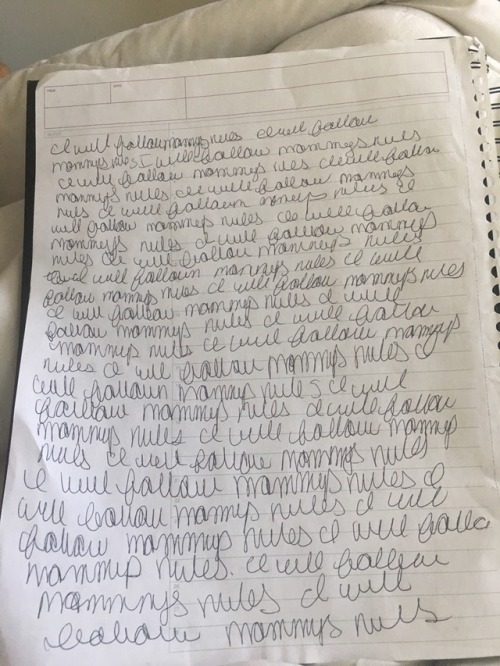 I will follow mommys rules I will follow
mommys rules I will follow mommys rules
I will follow mommys rules I will follow
mommys rules I will follow mommys
rules I will follow mommys rules I
will follow mommys rules I will follow
mommys rules I will follow mommys
rules I will follow mommys rules
I will follow mommys rules I will
follow mommys rules I will follow mommys rules
I will follow mommys rules I will
follow mommys rules I will follow
mommys rules I will follow mommys
rules I will follow mommys rules I
will follow mommys rules I will
follow mommys rules I will follow
mommys rules I will follow mommys
rules I will follow mommys rules
I will follow mommys rules I
will follow mommys rules I will
follow mommys rules I will follow
mommys rules. I will follow
mommys rules I will
follow mommys rules